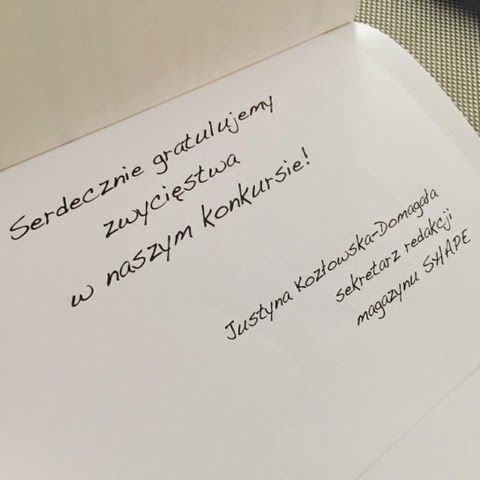 Serdecznie gratulujemy
zwycięstwa
w naszym konkursie!
Justyna Kozłowska-Domagała
sekretarz redakcji
magazynu SHAPE